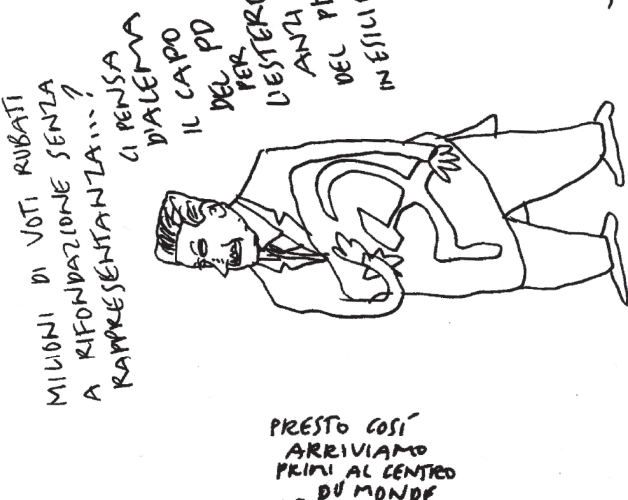 MILIONI DI VOTI RUBATI
A RIFONDAZIONE SENZA
RAPPRESENTANZA...?
CI PENSA
D'ALEMA
IL CAPO
DEL PD
PER
L'ESTERO
ANZI
DEL
IN ESILI
PRESTO COSÍ
ARRIVIAMO
PRIMI AL CENTRO
DÚ MONDE